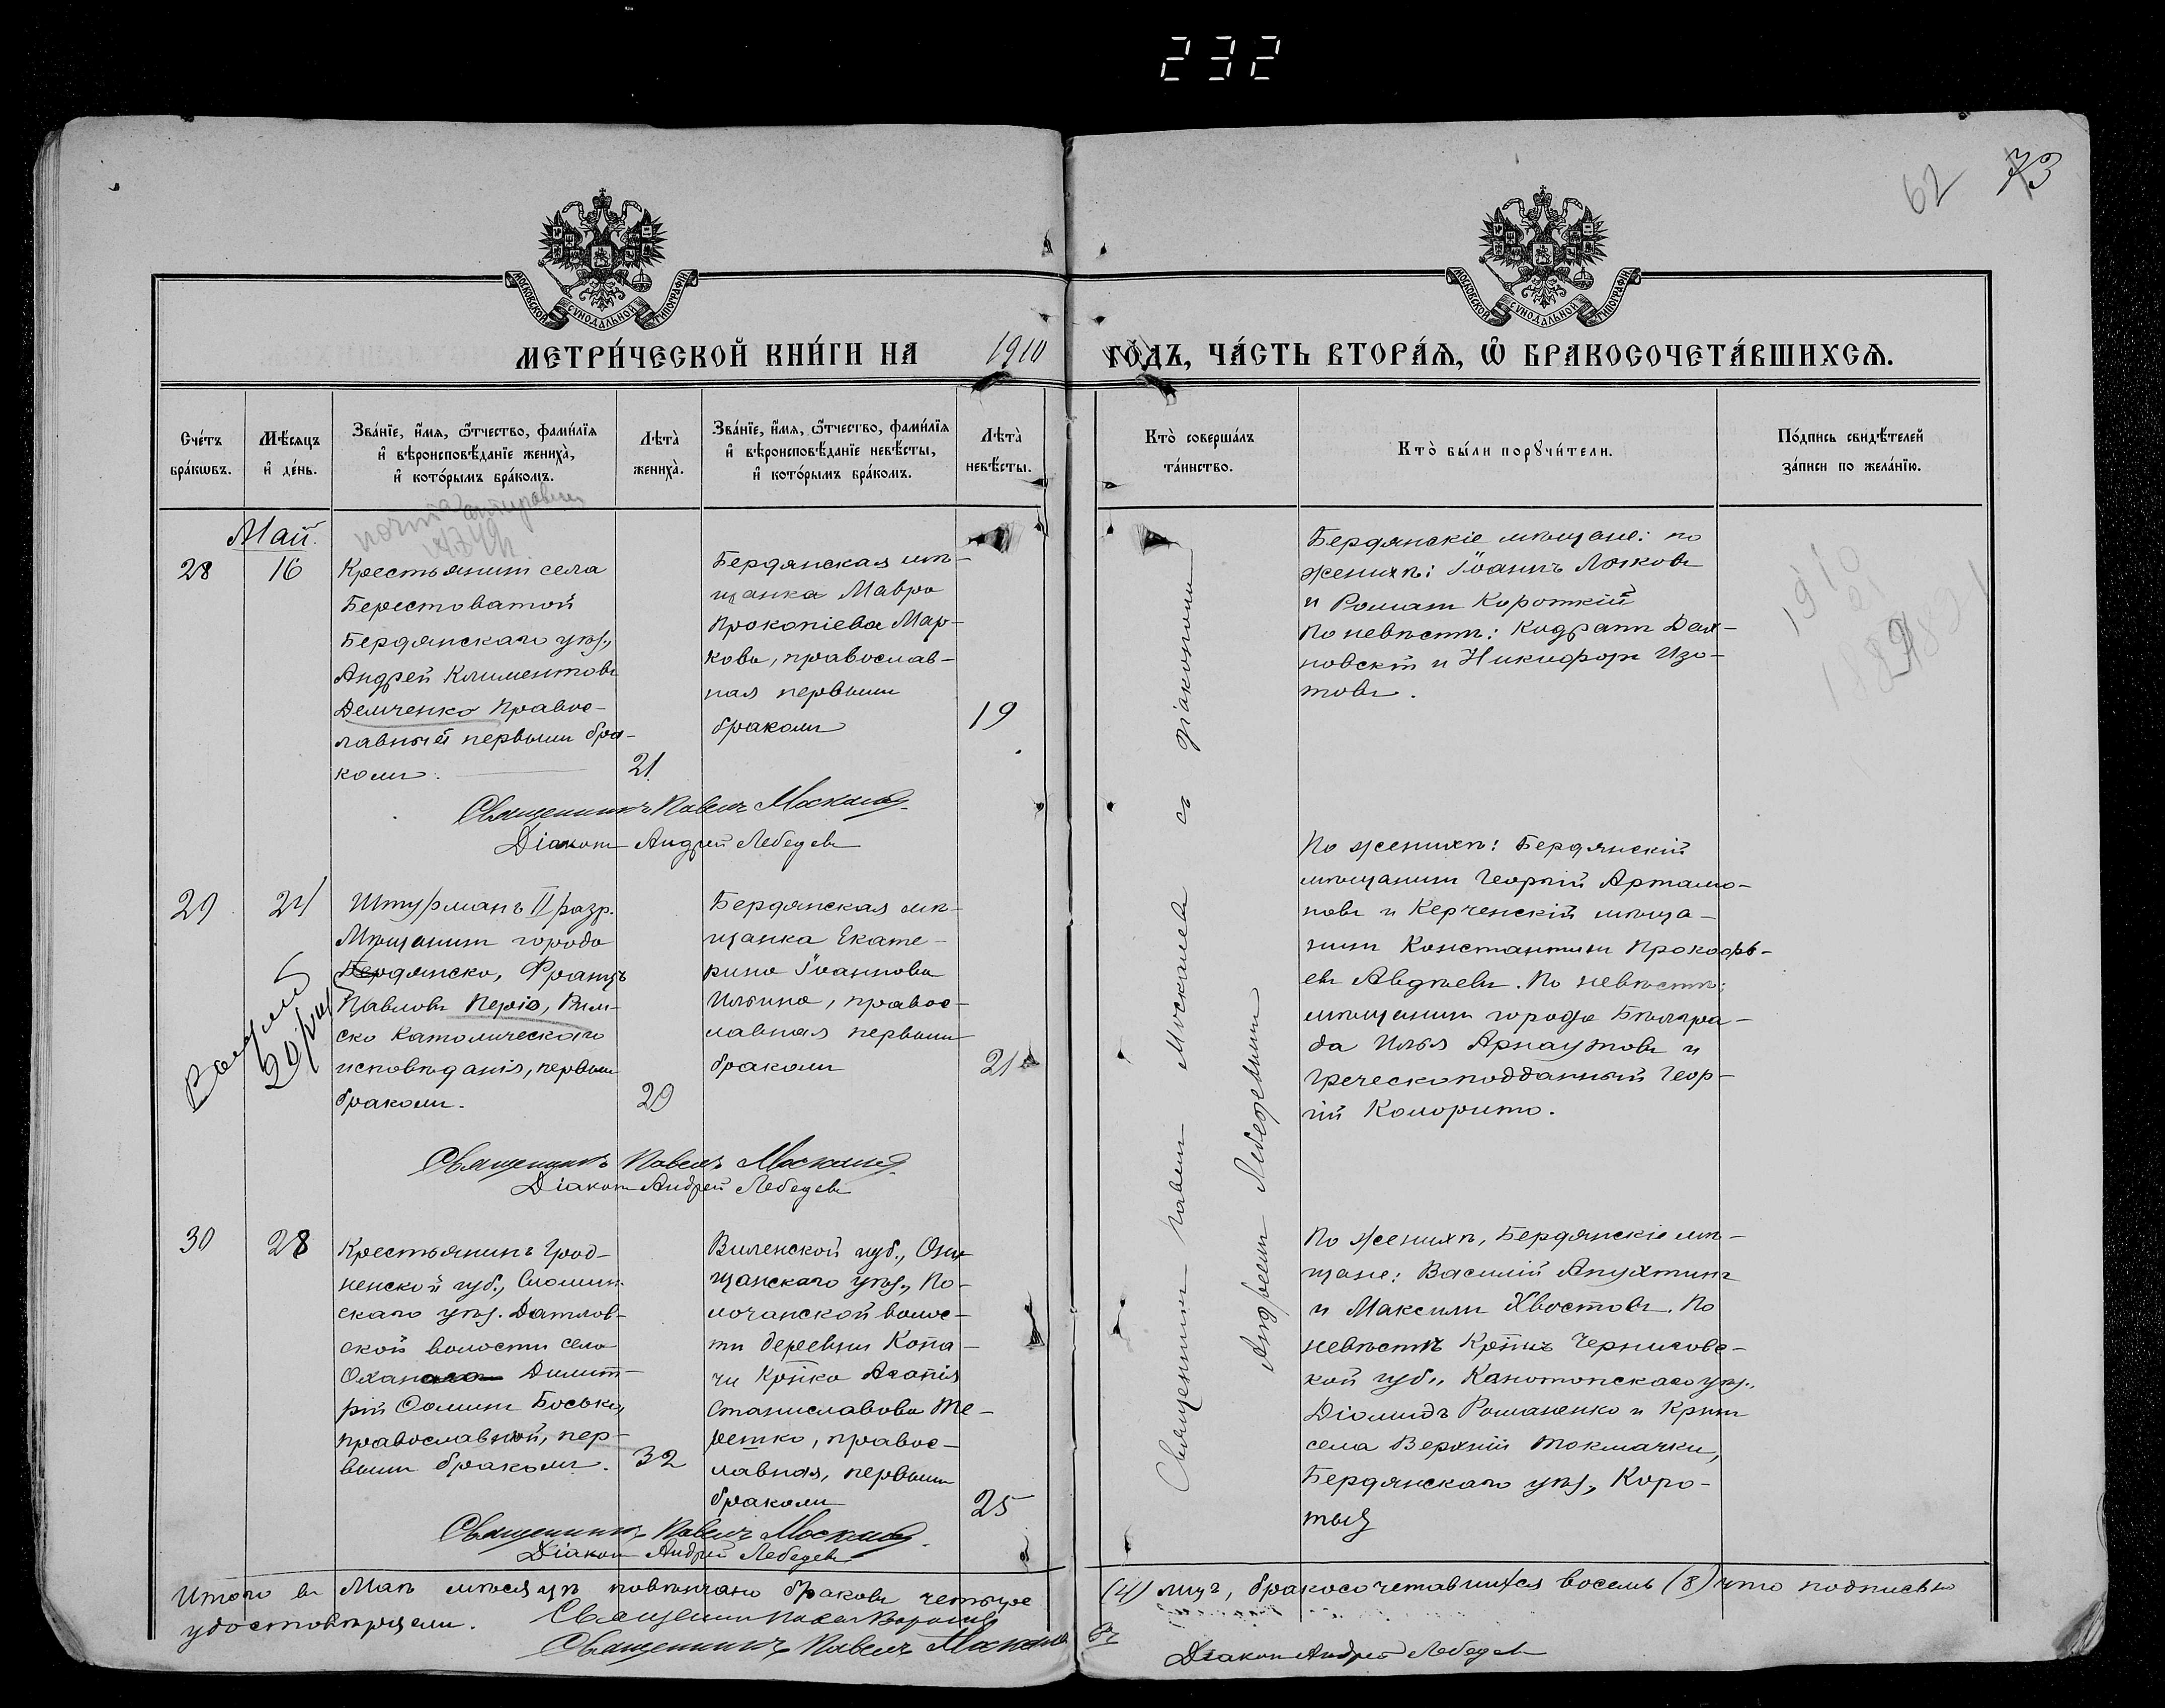 232
62 73
МОСКОВСКОЙ СѴНОДАЛЬНОЙ ТИПОГРАФІИ
МОСКОВСКОЙ СѴНОДАЛЬНОЙ ТИПОГРАФІИ
МЕТРИ́ЧЕСКОЙ КНИ́ГИ НА 1910 ГО́ДЪ, ЧА́СТЬ ВТОРА́Ѧ, Ѽ БРАКОСОЧЕТА́ВШИХСѦ.
Сче́тъ
бра́кѡвъ.
Мѣ́сяцъ
и҆ де́нь.
Зва́нїе, и҆́мѧ, ѻ҆́тчество, фами́лїѧ
и҆ вѣроисповѣ́данїе жениха̀,
и҆ кото́рымъ бра́комъ.
Лѣта̀
жениха̀.
Зва́нїе, и҆́мѧ, ѻ҆́тчество, фами́лїѧ
и҆ вѣроисповѣ́данїе невѣ́сты,
и҆ кото́рымъ бра́комъ.
Лѣта̀
невѣ́сты.
Кто̀ соверша́лъ
та́инство.
Кто̀ бы́ли порꙋчи́тели.
По́дпись свидѣ́телей
за́писи по жела́нїю.
Май.
28
16
Крестьянинъ села
Берестоватой
Бердянскаго уѣз.,
Андрей Климентовъ
Демченко Правос-
лавный первымъ бра-
комъ.
21
Бердянская мѣ-
щанка Мавра
Прокопіева Мар-
кова, православ-
ная первымъ
бракомъ
19
Бердянскіе мѣщане: по
женихѣ: Іоаннъ Ляховъ
и Романъ Короткій
По невѣстѣ:
и Никифоръ Изо-
товъ.
Священникъ Павелъ Москалевъ
Діаконъ Андрей Лебедевъ
29
24
Штурманъ II разр.
Мѣщанинъ города
Бердянска, Францъ
Павловъ Періо, Рим-
ско Католическаго
исповѣданія, первымъ
бракомъ.
29
Бердянская мѣ-
щанка Екате-
рина Іоаннова
Ильина, правос-
лавная первымъ
бракомъ
21
По женихѣ: Бердянскій
мѣщанинъ Георгій Артамо-
новъ и Керченскій мѣща-
нинъ Константинъ Прокофь-
евъ Авдѣевъ. По невѣстѣ:
мѣщанинъ города Бѣлгра-
да Илья Арнаутовъ и
греческоподданный Геор-
гій Коморато.
Священникъ Павелъ Москалевъ
Діаконъ Андрей Лебедевъ
30
28
Крестьянинъ Грод-
ненской губ., Слоним-
скаго уѣз. Дятлов-
ской волости села
Охан Димит-
рій Ѳоминъ Боська,
православный, пер-
вымъ бракомъ.
32
Виленской губ., Ошм-
щанскаго уѣз., По-
лочанской волос-
ти деревни Копа-
чи Кр҃нка Агапія
Станиславова Те-
решко, правос-
лавная, первымъ
бракомъ
25
По женихѣ, Бердянскіе мѣ-
щане: Василій Апухтинъ
и Максимъ Хвостовъ. По
невѣстѣ Крнъ Черниговс-
кой губ., Канотопскаго уѣз.,
Діомидъ Романенко и Крнъ
села Верхній Токмачки,
Бердянскаго уѣз., Коро-
тый
Священникъ Павелъ Москалевъ
Діаконъ Андрей Лебедевъ
Священникъ Павелъ Москалевъ съ діакономъ
Андреемъ Лебедевымъ
Итого въ Маѣ мѣсяцѣ повѣнчано браковъ четыре (4) лицъ, бракосочетавшихся восемь (8) что подписью
удостовѣряемъ.
Священникъ Павелъ Москалевъ
Діаконъ Андрей Лебедевъ